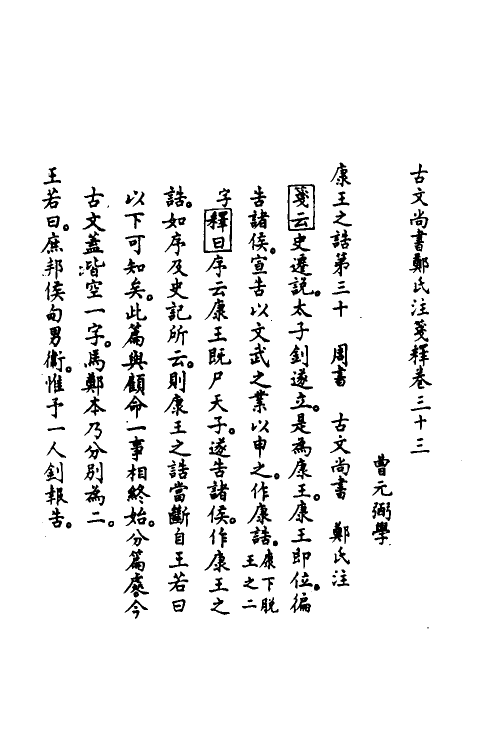 古文尚書鄭氏注箋釋卷三十三
曹元弼學
康王之誥第三十　周書　古文尚書　鄭氏注
箋云史遷說。太子釗遂立。是為康王。康王即位。徧
告諸侯。宣告以文武之業以申之。作康誥。康下脫王之二
字釋曰序云康王既尸天子。遂告諸侯。作康王之
誥。如序及史記所云。則康王之誥當斷自王若曰
以下可知矣。此篇與顧命一事相終始。分篇處今
古文蓋皆空一字。馬鄭本乃分別為二。
王若曰。庶邦侯甸男衛。惟予一人釗報告。